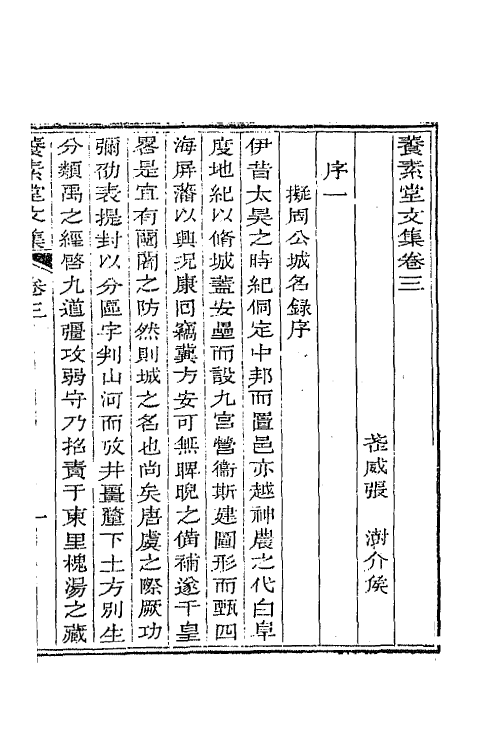 養素堂文集卷三
武威張　澍介侯
序一
擬周公城名錄序
伊昔太昊之時紀侗定中邦而置邑亦越神農之代白阜
度地紀以脩城蓋安壘而設九宮營衞斯建圖形而甄四
海屏藩以興況康回竊冀方安可無睥睨之備補遂干皇
畧是宜有闉闍之防然則城之名也尚矣唐虞之際厥功
彌劭表提封以分區宇判山河而攷井畺釐下土方別生
分類禹之經啓九道彊攻弱守乃招責于東里槐湯之藏
養素堂文集　卷三　　一